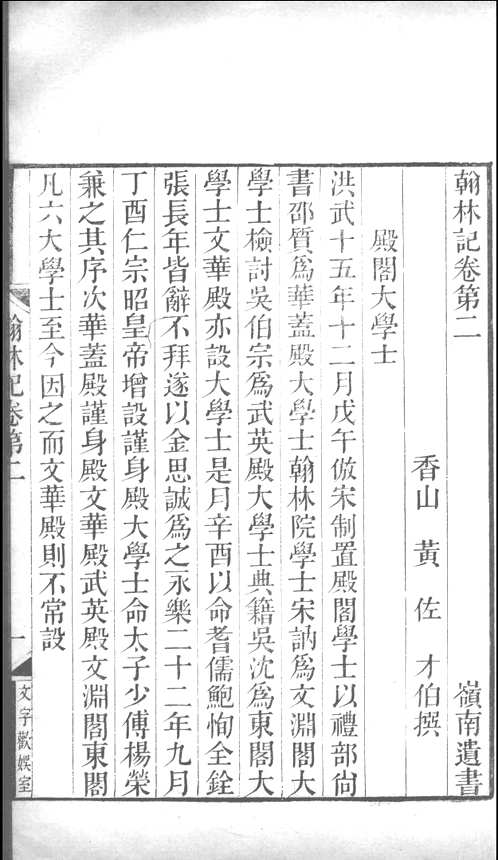 翰林記卷第二 嶺南遺書
香山 黃 佐 才伯撰
殿閣大學士
洪武十五年十二月戊午倣宋制置殿閣學士以禮部尙
書邵質爲華蓋殿大學士翰林院學士宋訥爲文淵閣大
學士檢討吳伯宗爲武英殿大學士典籍吳沈爲東閣大
學士文華殿亦設大學士是月辛酉以命耆儒鮑恂全銓
張長年皆辭不拜遂以金思誠爲之永樂二十二年九月
丁酉仁宗昭皇帝增設謹身殿大學士命太子少傅楊榮
兼之其序次華蓋殿謹身殿文華殿武英殿文淵閣東閣
凡六大學士至今因之而文華殿則不常設
翰林記卷第二 一 文字歡娛室